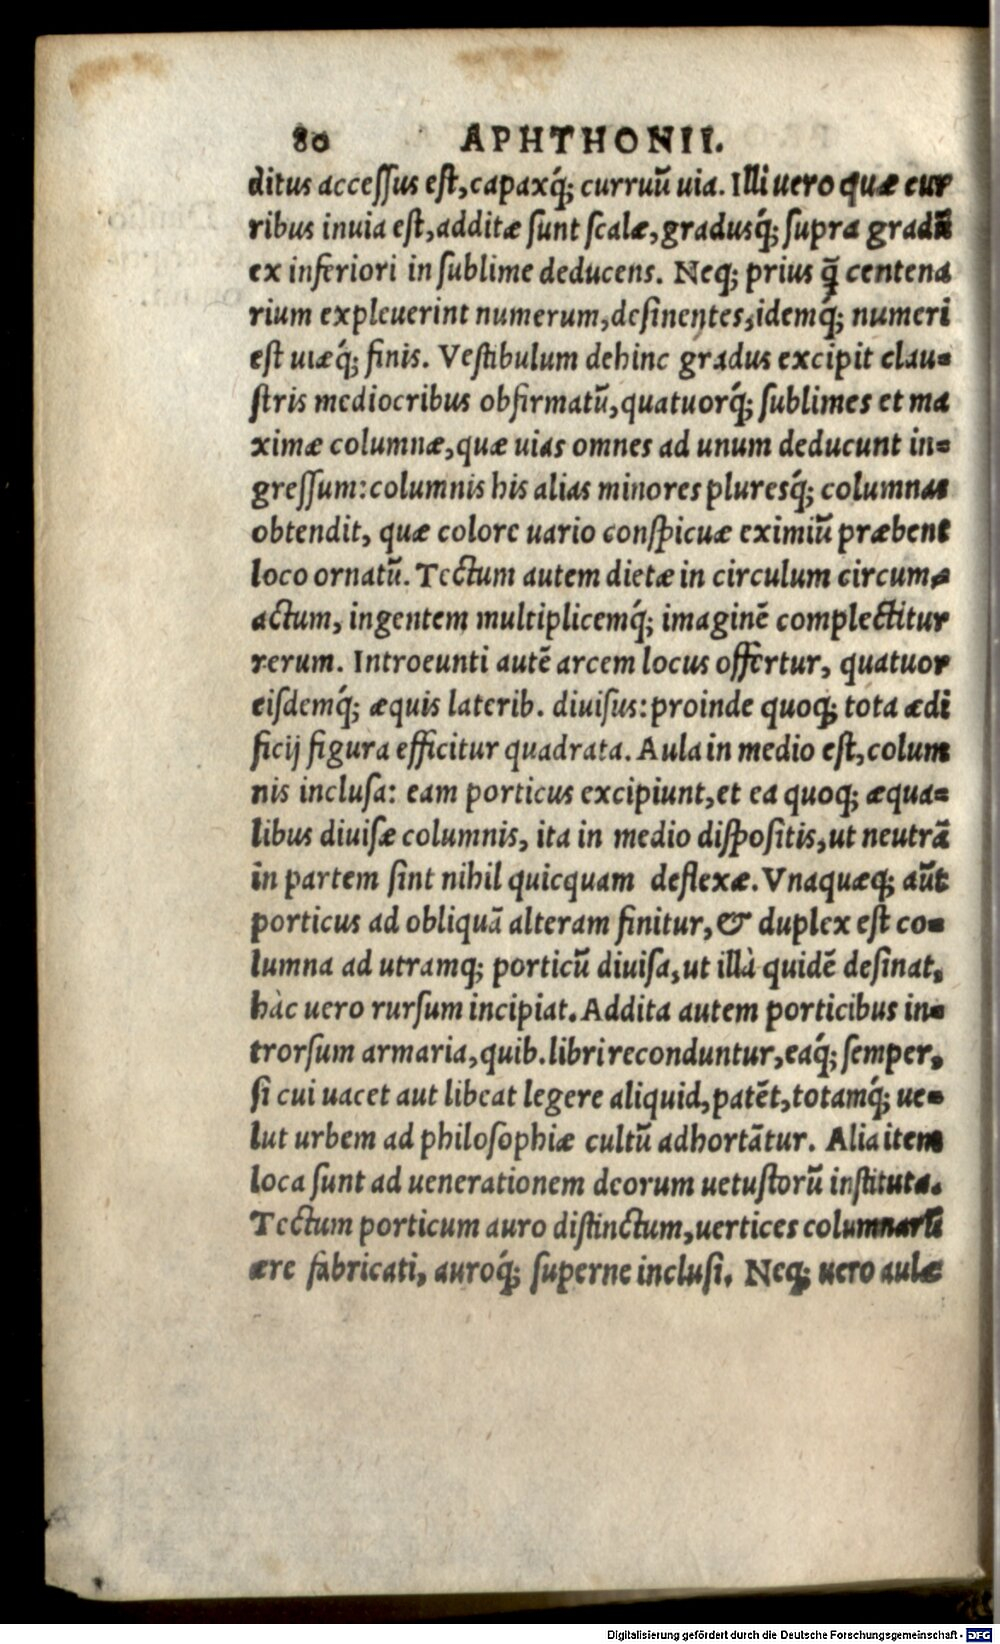 80 APHTHONII.
ditus accessus est, capaxq́; curruū uia. Illi uero quæ cur
ribus inuia est, additæ sunt scalæ, gradusq́; supra gradū
ex inferiori in sublime deducens. Neq; prius q̄ centena
rium expleuerint numerum, desinentes, idemq́; numeri
est uiæq́; finis. Vestibulum dehinc gradus excipit clau=
stris mediocribus obfirmatū, quatuorq́; sublimes et ma
ximæ columnæ, quæ uias omnes ad unum deducunt in=
gressum: columnis his alias minores pluresq́; columnas
obtendit, quæ colore uario conspicuæ eximiū præbent
loco ornatū. Tectum autem dietæ in circulum circum=
actum, ingentem multiplicemq́; imaginē complectitur
rerum. Introeunti autē arcem locus offertur, quatuor
eisdemq́; æquis laterib. diuisus: proinde quoq; tota ædi
ficij figura efficitur quadrata. Aula in medio est, colum
nis inclusa: eam porticus excipiunt, et ea quoq; æqua=
libus diuisæ columnis, ita in medio dispositis, ut neutrā
in partem sint nihil quicquam deflexæ. Vnaquæq; aūt
porticus ad obliquā alteram finitur, & duplex est co=
lumna ad utramq; porticū diuisa, ut illà quidē desinat,
hàc uero rursum incipiat. Addita autem porticibus in=
trorsum armaria, quib. libri reconduntur, eaq́; semper,
si cui uacet aut libeat legere aliquid, patēt, totamq́; ue=
lut urbem ad philosophiæ cultū adhortātur. Alia item
loca sunt ad uenerationem deorum uetustorū instituta.
Tectum porticum auro distinctum, uertices columnarū
ære fabricati, auroq́; superne inclusi. Neq; uero aulæ
Digitalisierung gefördert durch die Deutsche Forschungsgemeinschaft - DFG